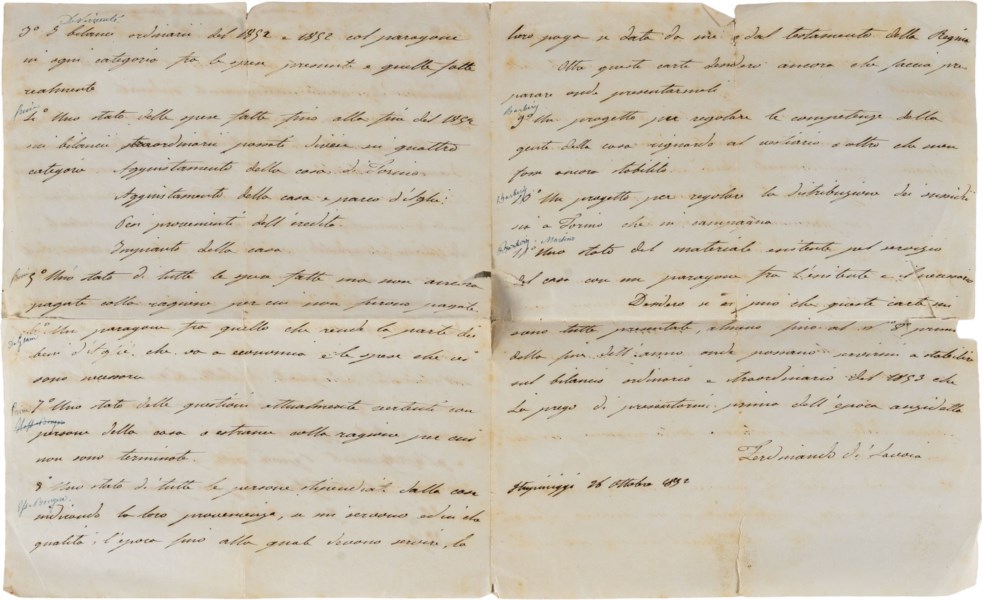 3° I bilanci ordinari del 1852 e 1852 col paragone
in ogni categoria fra le spese presente e quelle fatte
realmente
4° Uno stato delle spese fatte fino alla fine del 1852
sui bilanci straordinarii passati divise in quattro
categorie Aggiustamento della casa di Torino
Aggiustamento della casa e parco d'Agliè
Pesi provenienti dell'eredità
Impianto della casa
5° Uno stato di tutte le spese fatte ma non ancora
pagate colla ragione per cui non furono pagate
Un paragone fra quello che rende la parte dei
beni d'Agliè che va a economia e le spese che vi
sono necessarie
7° Uno stato delle questioni attualmente esistenti con
persone della casa o estranee colla ragione per cui
non sono terminate.
8° Uno stato di tutte le persone stipendiate dalla casa
indicando la loro provenienza, a mi servono ed in che
qualità, l'epoca fino alla quale devono servire, la
loro paga e data da me e dal testamento della Regina
Oltre queste carte desidero ancora che faccia pre
parare onde presentarmeli
Barbery
9° Un progetto per regolare le competenze della
gente della casa riguardo al vestiario e altro che non
fosse ancora stabilito.
10° Un progetto per regolare la distribuzione dei
sia a Torino che in campagna
11° Uno stato del materiale esistente pel servizio
del casa con un paragone fra l'esistente e il necessario
Desidero che queste carte mi
siano tutte presentate, almeno fino al n° 8 prima
della fine dell'anno onde possano servirmi a stabilire
sul bilancio ordinario e straordinario del 1853 che
La prego di presentarmi prima dell'epoca anzidetta
Ferdinando di Savoia
Stupinigi 26 Ottobre 1852